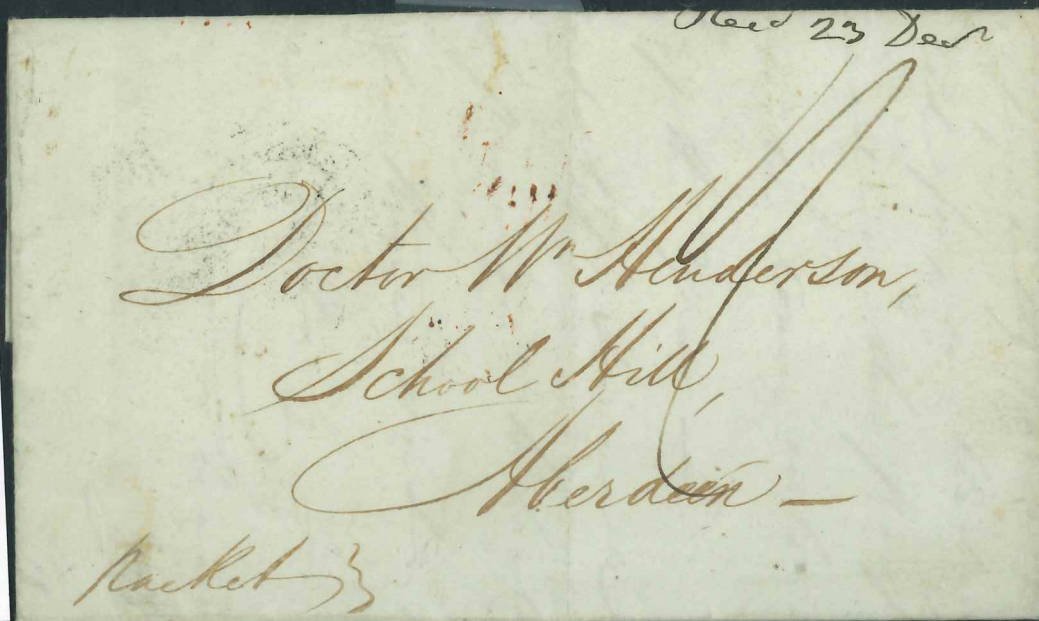 Recd 23 Decr
Doctor Wm Henderson,
School Hill,
Aberdeen —
Packet